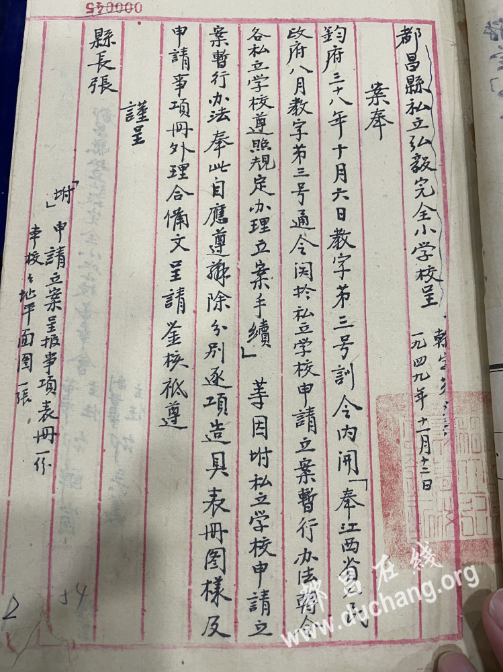 都昌縣私立弘毅完全小学校呈
一九四九年十二月十二日
案奉
鈞府三十八年十月六日教字第三号訓令内開「奉江西省人民
政府八月教字第三号通令関於私立学校申請立案暫行办法轉令
各私立学校遵照規定办理立案手續」等因坿私立学校申請立
案暫行办法奉此自應遵辦除分别逐項造具表冊图樣及
申請事項冊外理合備文呈請 鉴核祗遵
謹呈
縣長張
「坿」申請立案呈报事項表冊一份
本校校地平面图一張。
54
0000045
都昌在线
www.duchang.org